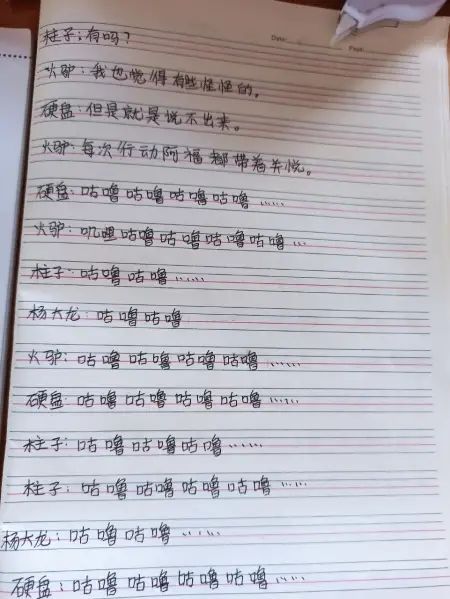 Date:
柱子:有吗?
火驴:我也觉得有些怪怪的。
硬盘:但是就是说不出来。
火驴:每次行动阿福都带着关悦。
硬盘:咕噜咕噜咕噜咕噜……
火驴:叽咀咕噜咕噜咕噜咕噜…
柱子:咕噜咕噜……
杨大龙:咕噜咕噜
火驴:咕噜咕噜咕噜咕噜……
硬盘:咕噜咕噜咕噜咕噜……
柱子:咕噜咕噜咕噜……
柱子:咕噜咕噜咕噜咕噜……
杨大龙:咕噜咕噜……
硬盘:咕噜咕噜咕噜咕噜……